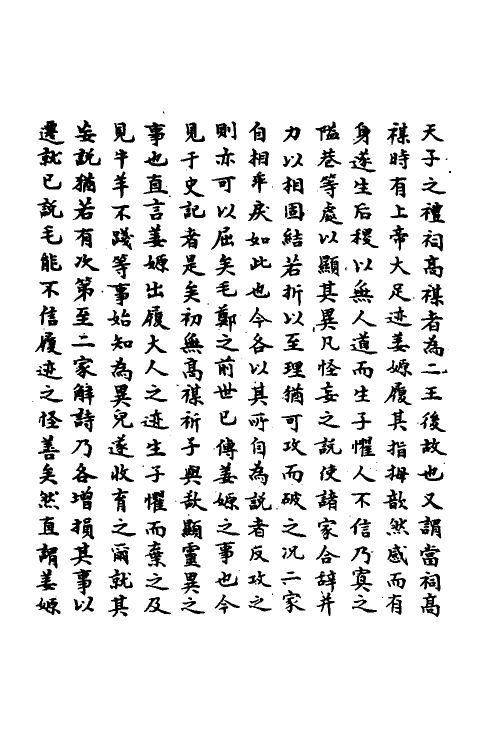 天子之禮祠高禖者為二王後故也又謂當祠高
禖時有上帝大足迹姜嫄履其指拇歆然感而有
身遂生后稷以無人道而生子懼人不信乃寘之
隘巷等處以顯其異凡怪妄之說使諸家合辭并
力以相固結若折以至理猶可攻而破之况二家
自相乖戾如此也今各以其所自為說者反攻之
則亦可以屈矣毛鄭之前世已傳姜嫄之事也今
見于史記者是矣初無高禖祈子與歆顯靈異之
事也直言姜嫄出履大人之迹生子懼而棄之及
見牛羊不踐等事始知為異兒遂收育之爾就其
妄說猶若有次第至二家解詩乃各增損其事以
遷就已說毛能不信履迹之怪善矣然直謂姜嫄